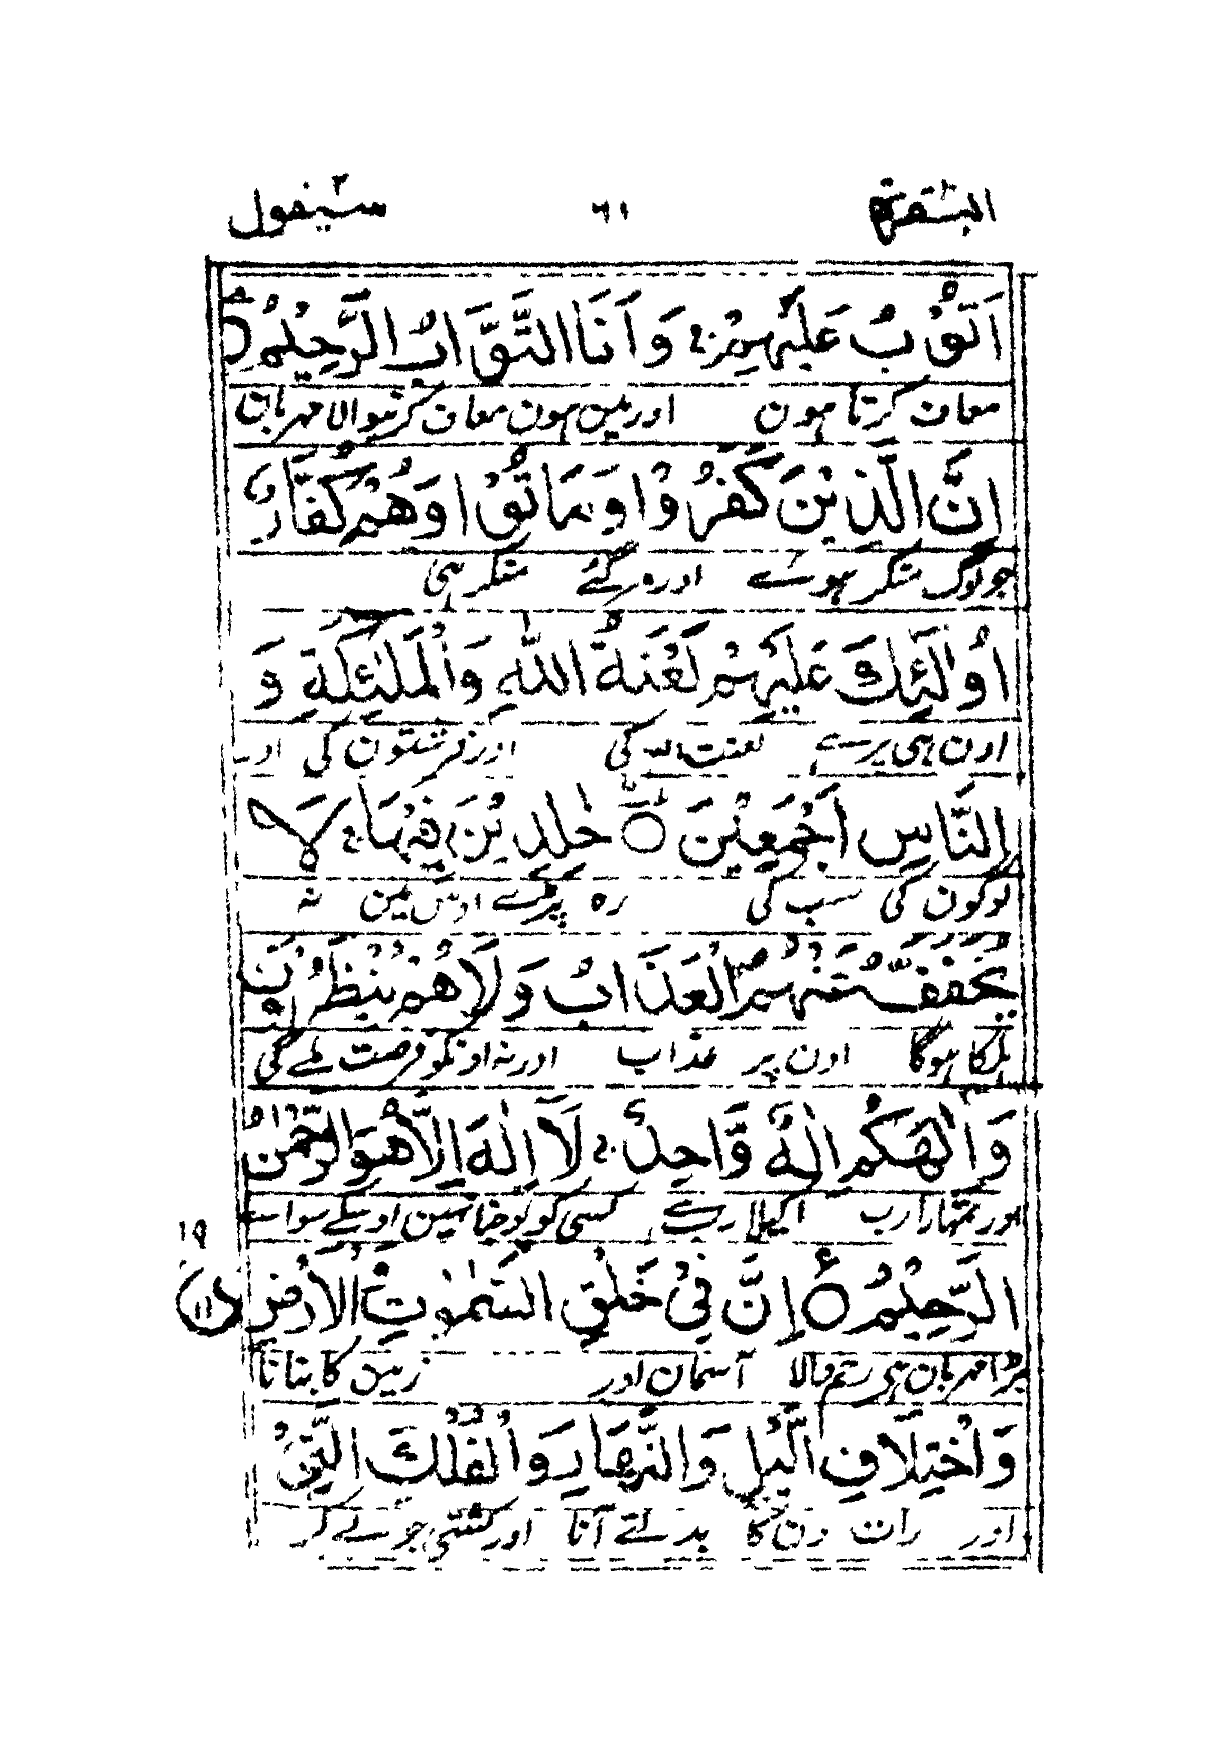 البقرة ٢ ٦١ سيقول ٢
اَتُوْبُ عَلَيْهِمْ ۚ وَاَنَا التَّوَّابُ الرَّحِيْمُ ○
معاف کرتا ہون اور مین ہون معاف کرنیوالا مہربان
اِنَّ الَّذِيْنَ كَفَرُوْا وَمَاتُوْا وَهُمْ كُفَّارٌ
جو لوگ منکر ہوے اور مر گئے منکر ہی
اُولٰٓئِكَ عَلَيْهِمْ لَعْنَةُ اللّٰهِ وَالْمَلٰٓئِكَةِ وَ
اون ہی پر ہے لعنت اللہ کی اور فرشتون کی اور
النَّاسِ اَجْمَعِيْنَ ○ خٰلِدِيْنَ فِيْهَا ۚ لَا
لوگون کی سب کی رہ پڑے اوس مین نہ
يُخَفَّفُ عَنْهُمُ الْعَذَابُ وَلَا هُمْ يُنْظَرُوْنَ
ہلکا ہوگا اون پر عذاب اور نہ اونکو فرصت ملے گی
وَاِلٰهُكُمْ اِلٰهٌ وَّاحِدٌ ۚ لَآ اِلٰهَ اِلَّا هُوَ الرَّحْمٰنُ
اور تمہارا رب اکیلا رب ہے کسی کو پوجنا نہین اوسکے سواے
الرَّحِيْمُ ○ اِنَّ فِيْ خَلْقِ السَّمٰوٰتِ وَالْاَرْضِ
١٩
١١
بڑا مہربان ہی رحم والا آسمان اور زمین کا بنانا
وَاخْتِلَافِ الَّيْلِ وَالنَّهَارِ وَالْفُلْكِ الَّتِيْ
اور رات دن کا بدلتے آنا اور کشتی جو لے کر